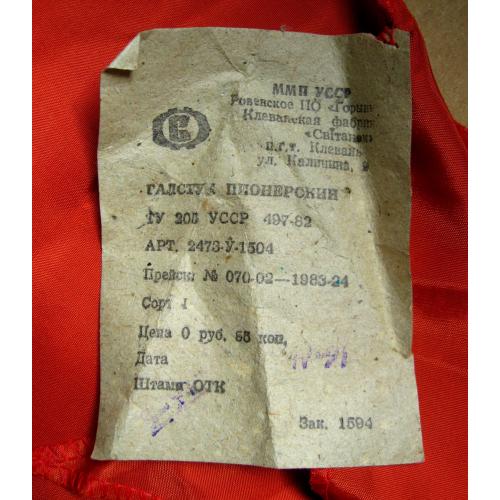 ММП УССР
Ровенское ПО «Горынь
Клеванская фабрика
«Світанок»
п.г.т. Клевань
ул. Калинина, 9
ГАЛСТУК ПИОНЕРСКИЙ
ТУ 205 УССР 497-82
АРТ. 2473-У-1504
Прейск. № 070-02—1983-24
Сорт 1
Цена 0 руб. 55 коп.
Дата
Штамп ОТК
Зак. 1594